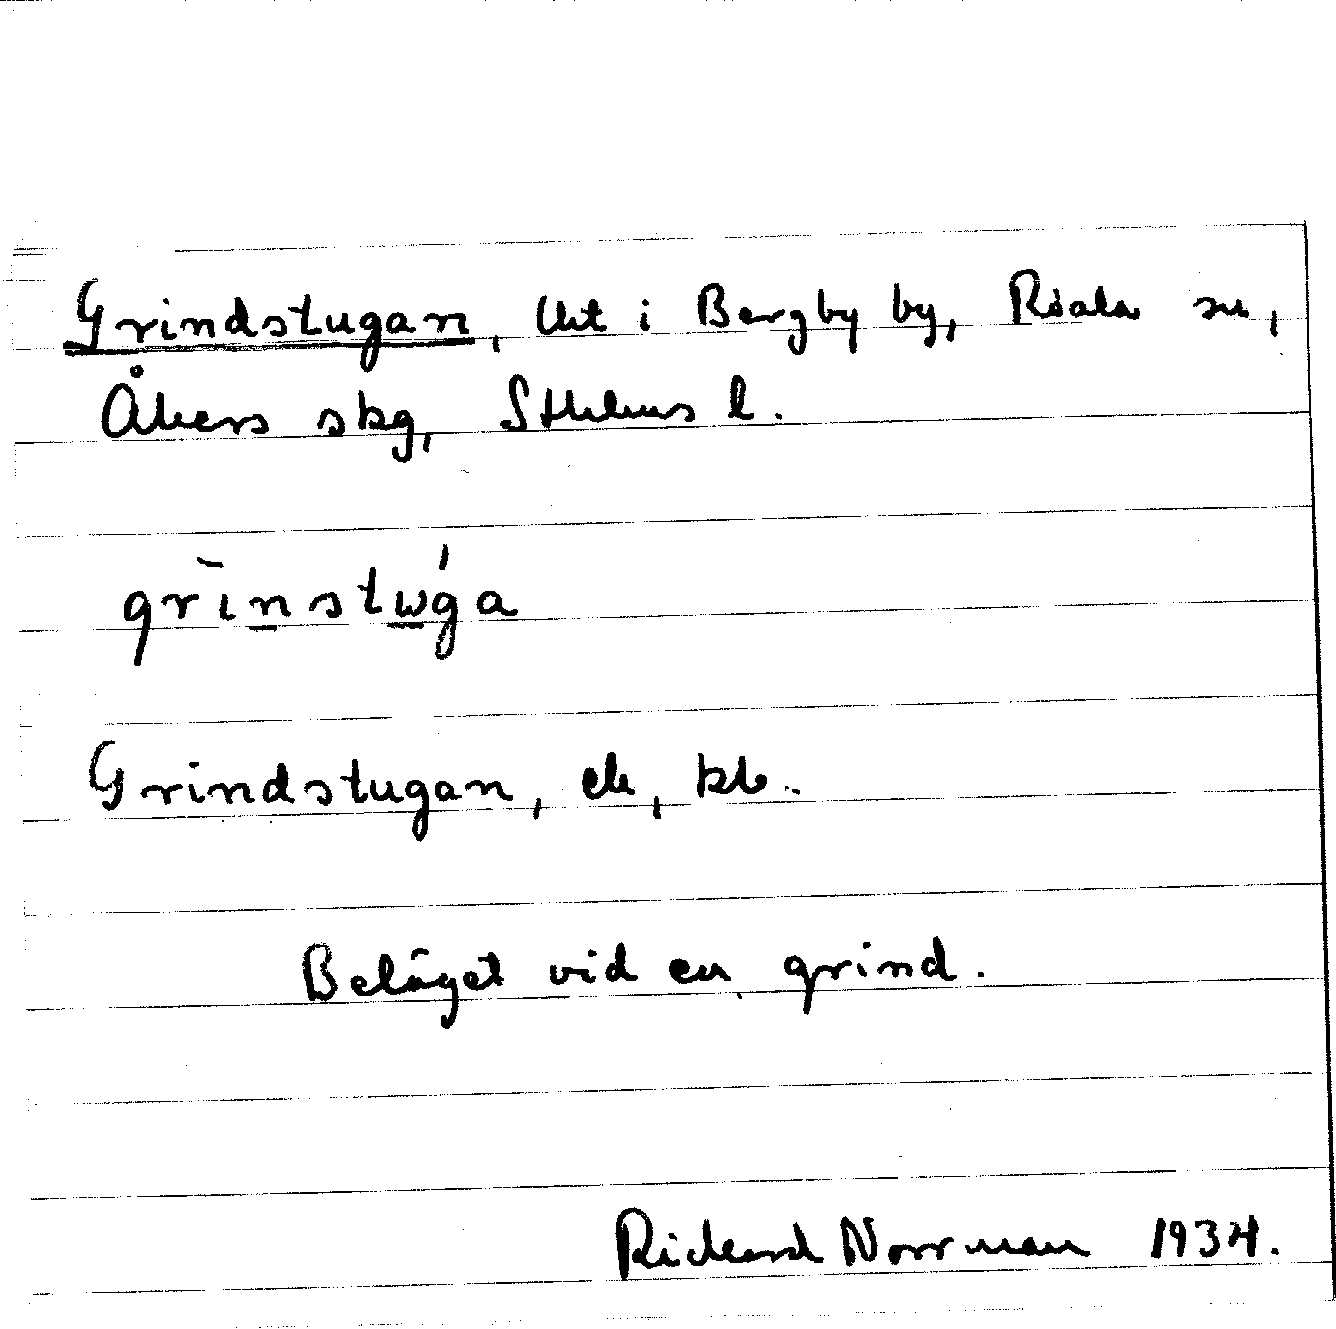 Grindstugan, lht i Bergby by, Roala sn,
Åkers skg, Sthlms l.
grìnstẃga
Grindstugan, ek, kb.
Beläget vid en grind.
Rickard Norrman 1934.